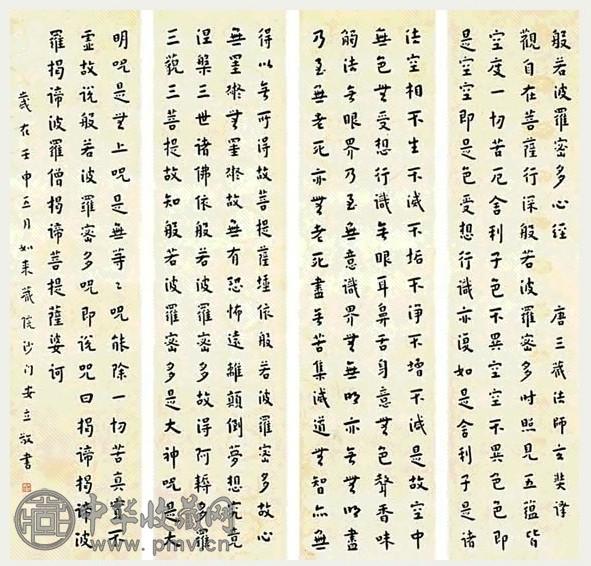 般若波羅密多心經 唐三藏法師玄奘譯
觀自在菩薩行深般若波羅密多時照見五蘊皆
空度一切苦厄舍利子色不異空空不異色色即
是空空即是色受想行識亦復如是舍利子是諸
法空相不生不滅不垢不淨不增不減是故空中
無色無受想行識無眼耳鼻舌身意無色聲香味
觸法無眼界乃至無意識界無無明亦無無明盡
乃至無老死亦無老死盡無苦集滅道無智亦無
得以無所得故菩提薩埵依般若波羅密多故心
無罣礙無罣礙故無有恐怖遠離顛倒夢想究竟
涅槃三世諸佛依般若波羅密多故得阿耨多羅
三藐三菩提故知般若波羅密多是大神咒是大
明咒是無上咒是無等々咒能除一切苦真實不
虛故說般若波羅密多咒即說咒曰揭諦揭諦波
羅揭諦波羅僧揭諦菩提薩婆訶
歲在壬申五月如來藏院沙門安立敬書
中华收藏网
www.pmv.cn